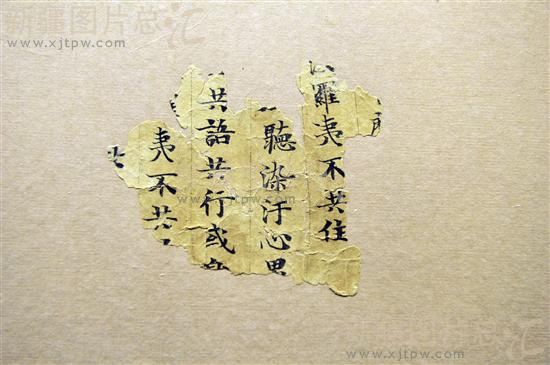 新疆图片总汇
www.xjtpw.com
羅夷不共住
聽染汙心
共語共行或
夷不共
新疆图片总汇
www.xjtpw.com